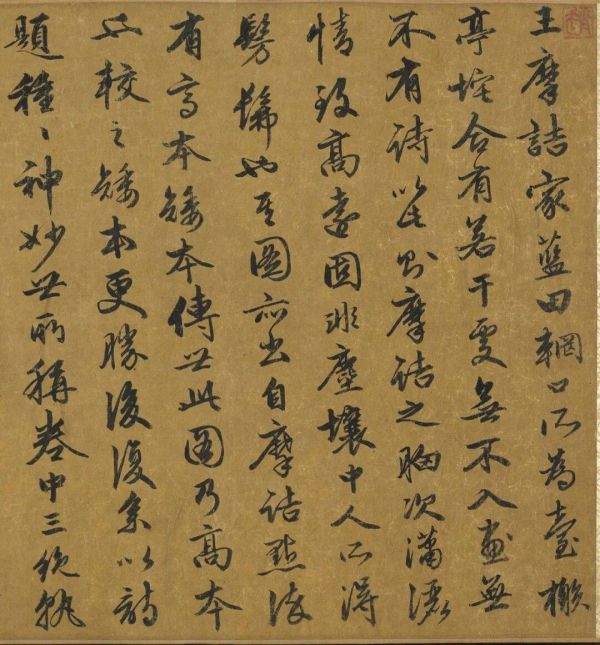 王摩詰家藍田輞口所為臺榭
亭垞合有若干處無不入畫無
不有詩以此則摩詰之胸次瀟灑
情致高遠固非塵壤中人所得
髣髴也其圖亦出自摩詰點染
有高本矮本傳世此圖乃高本
也較之矮本更勝後復系以詩
題種〻神妙世所稱卷中三絕孰